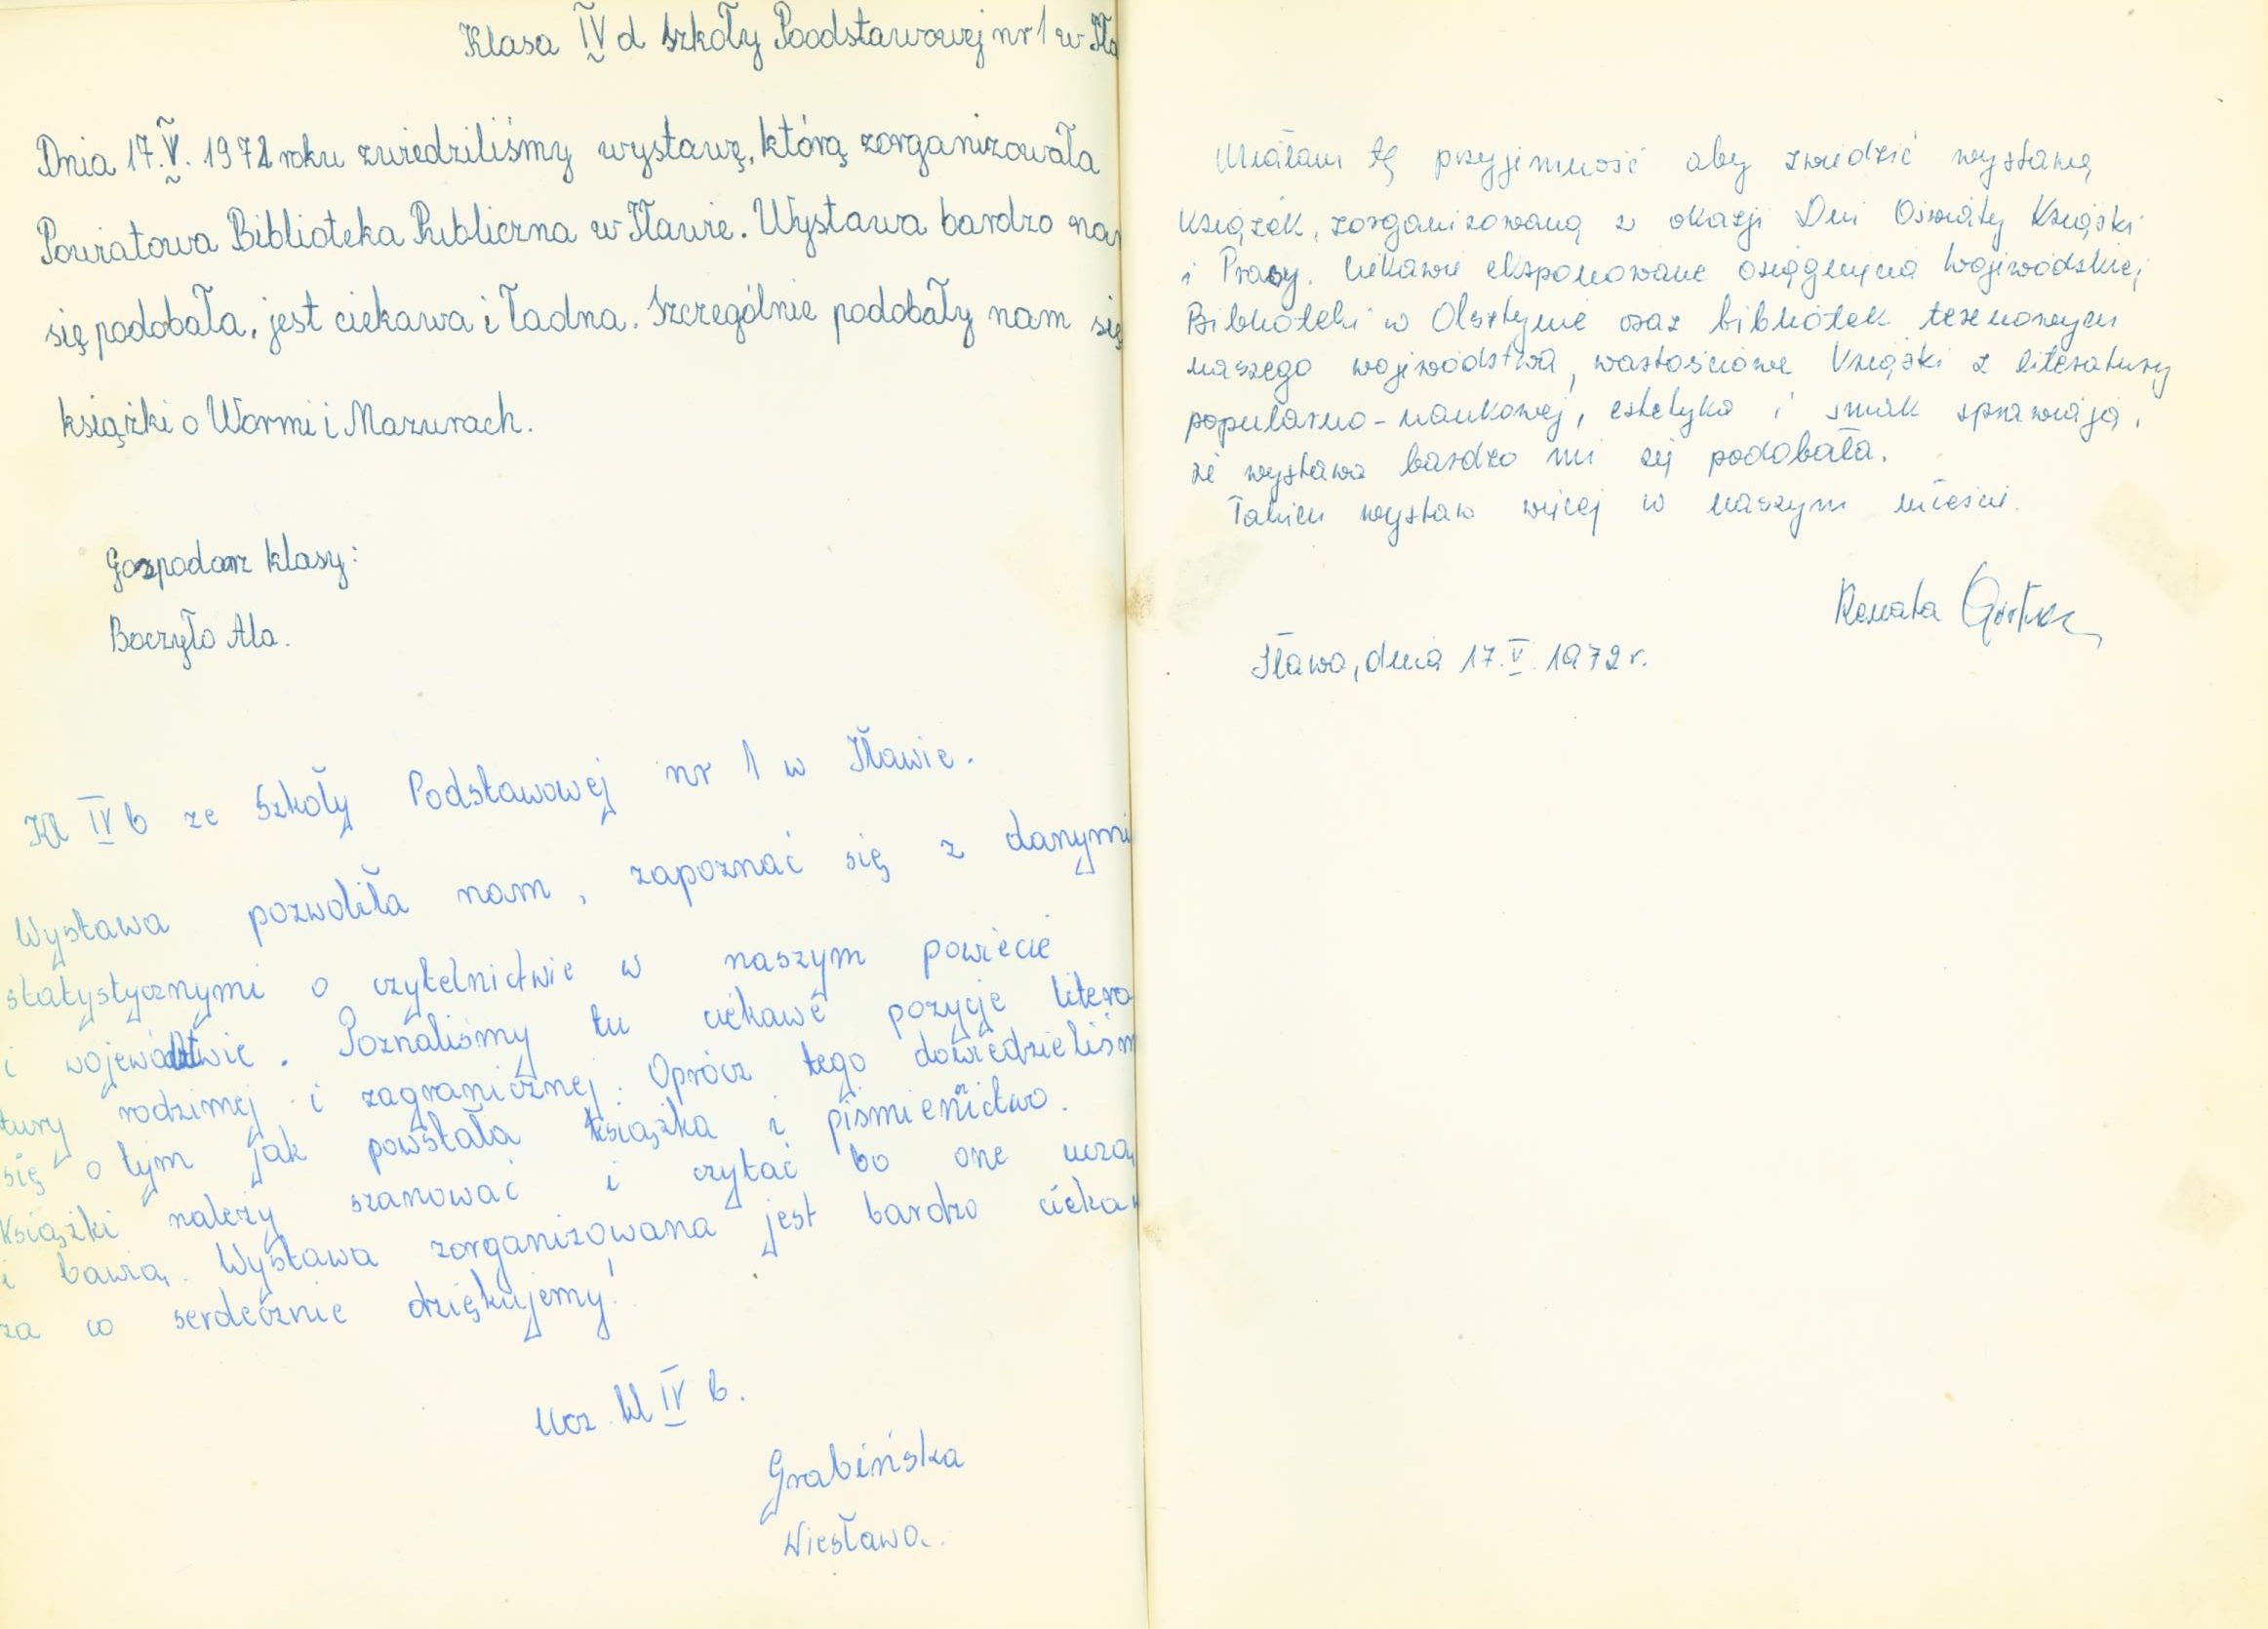 Klasa IV d Szkoły Poodstawowej nr 1 w Iła
Dnia 17.V. 1972 roku zwiedziliśmy wystawę, którą zorganizowała
Powiatowa Biblioteka Publiczna w Iławie. Wystawa bardzo na
się podobała, jest ciekawa i ładna. Szczególnie podobały nam się
książki o Warmi i Mazurach.
Gospodarz klasy:
Boczyło Ala.
Kl IV b ze Szkoły Podstawowej nr 1 w Iławie.
Wystawa pozwoliła nam, zapoznać się z danymi
statystycznymi o czytelnictwie w naszym powiecie
i województwie. Poznaliśmy tu ciekawe pozycje litera
tury rodzimej i zagranicznej. Oprócz tego dowiedzieliśm
się o tym jak powstała książka i piśmienictwo.
Książki należy szanować i czytać bo one uczą
i bawią. Wystawa zorganizowana jest bardzo cieka
za co serdecznie dziękujemy!
Ucz. kl IV b.
Grabińska
Wiesława.
Miałam tę przyjimność aby zwiedzić wystawę
książek, zorganizowaną z okazji Dni Oświaty Książki
i Prasy. Ciekawie eksponowane osiągnięcia Wojewódzkiej
Biblioteki w Olsztynie oraz bibliotek terenowych
naszego województwa, wartościowe książki z literatury
popularno-naukowej, estetyka i smak sprawiają,
że wystawa bardzo mi się podobała.
Takich wystaw więcej w naszym mieście.
Renata
Iława, dnia 17.V.1972 r.